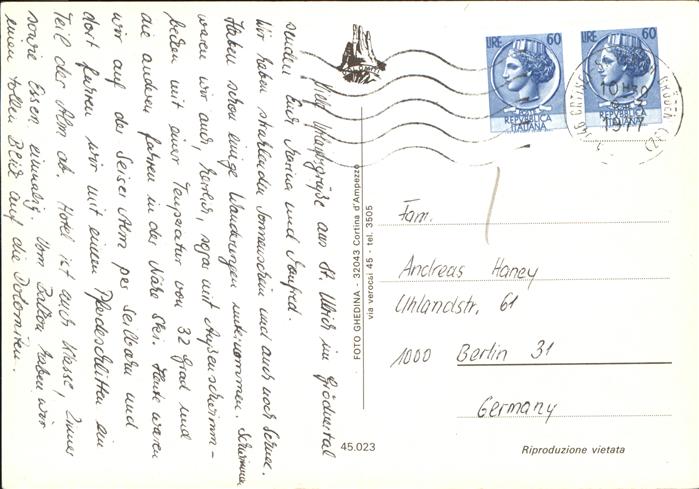 Viele Urlaubsgrüße aus St. Ulrich im Grödnertal
senden Euch Marina und Manfred.
Wir haben strahlenden Sonnenschein und auch noch Schnee.
Haben schon einige Wanderungen unternommen. Schwimmen
waren wir auch, herrlich, sogar mit Außenschwimm-
becken mit einer Temperatur von 32 Grad und
die anderen fahren in der Nähe Ski. Heute waren
wir auf der Seiser Alm per Seilbahn und
dort fuhren wir mit einem Pferdeschlitten ein
Teil der Alm ab. Hotel ist auch Klasse, Zimmer
sowie Essen einmalig. Vom Balkon haben wir
einen tollen Blick auf die Dolomiten.
DOLOMITI
FOTO GHEDINA - 32043 Cortina d'Ampezzo
via verocai 45 - tel. 3505
45.023
LIRE 60
POSTE
REPVBBLICA
ITALIANA
LIRE 60
POSTE
REPVBBLICA
ITALIANA
ORTISEI
GRÖDEN (BZ)
1977
Fam.
Andreas Haney
Uhlandstr. 61
1000 Berlin 31
Germany
Riproduzione vietata